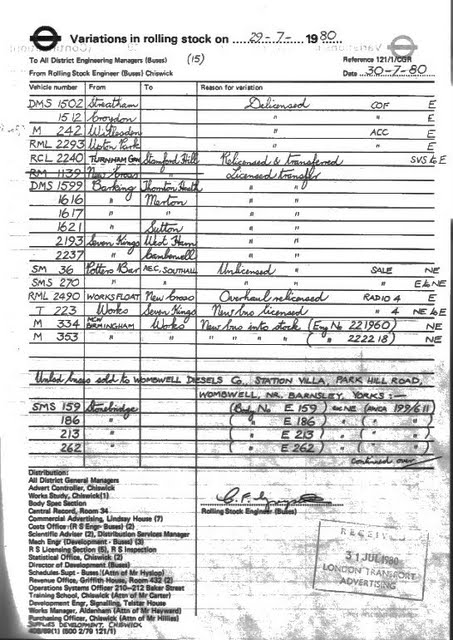 Variations in rolling stock on 29-7- 1980
To All District Engineering Managers (Buses) (15) Reference 121/1/CGR
From Rolling Stock Engineer (Buses) Chiswick Date 30-7-80
Vehicle number From To Reason for variation
DMS 1502 Streatham Delicensed COF E
1512 Croydon " " E
M 242 Willesden " ACC E
RML 2293 Upton Park " " E
RCL 2240 TURNHAM GRN Stamford Hill Relicensed & transferred SVS & E
RM 1139 New Cross Licensed transfer
DMS 1599 Barking Thornton Heath " "
1616 " Merton " "
1617 " " " "
1621 " Sutton " "
2193 Seven Kings West Ham " "
2237 " Camberwell " "
SM 36 Potters Bar AEC, SOUTHALL Unlicensed SALE NE
SMS 270 " " " " E & NE
RML 2490 WORKS FLOAT New Cross Overhaul relicensed RADIO 4 E
T 223 Works Seven Kings New bus licensed " 4 NE & E
M 334 MCW BIRMINGHAM Works New bus into stock (Eng No 221960) NE
M 353 " " " " " ( " 222218) NE
Unlic'd buses sold to WOMBWELL DIESELS Co., STATION VILLA, PARK HILL ROAD,
WOMBWELL, NR. BARNSLEY, YORKS :—
SMS 159 Stonebridge (Body No E 159)
186 " ( " E 186)
213 " ( " E 213)
262 " ( " E 262)
continued over
Distribution:
All District General Managers
Advert Controller, Chiswick
Works Study, Chiswick(1)
Body Spec Section
Central Record, Room 34
Commercial Advertising, Lindsay House (7)
Costs Office (R S Engr- Buses) (2)
Scientific Adviser (2), Distribution Services Manager
Mech Engr (Development - Buses) (3)
R S Licensing Section (5), R S Inspection
Statistical Office, Chiswick (2)
Director of Development (Buses)
Schedules Supt - Buses (Attn of Mr Hyslop)
Revenue Office, Griffith House, Room 432 (2)
Operations Systems Officer 210-212 Baker Street
Training School, Chiswick (Attn of Mr Carter)
Development Engr, Signalling, Telstar House
Works Manager, Aldenham (Attn of Mr Hayward)
Purchasing Officer, Chiswick (Attn of Mr Hillies)
SUPPLIES DEVELOPMENT, CHISWICK
408/69(1) (500 2/79 121/1)
Rolling Stock Engineer (Buses)
RECEIVED
31 JUL 1980
LONDON TRANSPORT
ADVERTISING